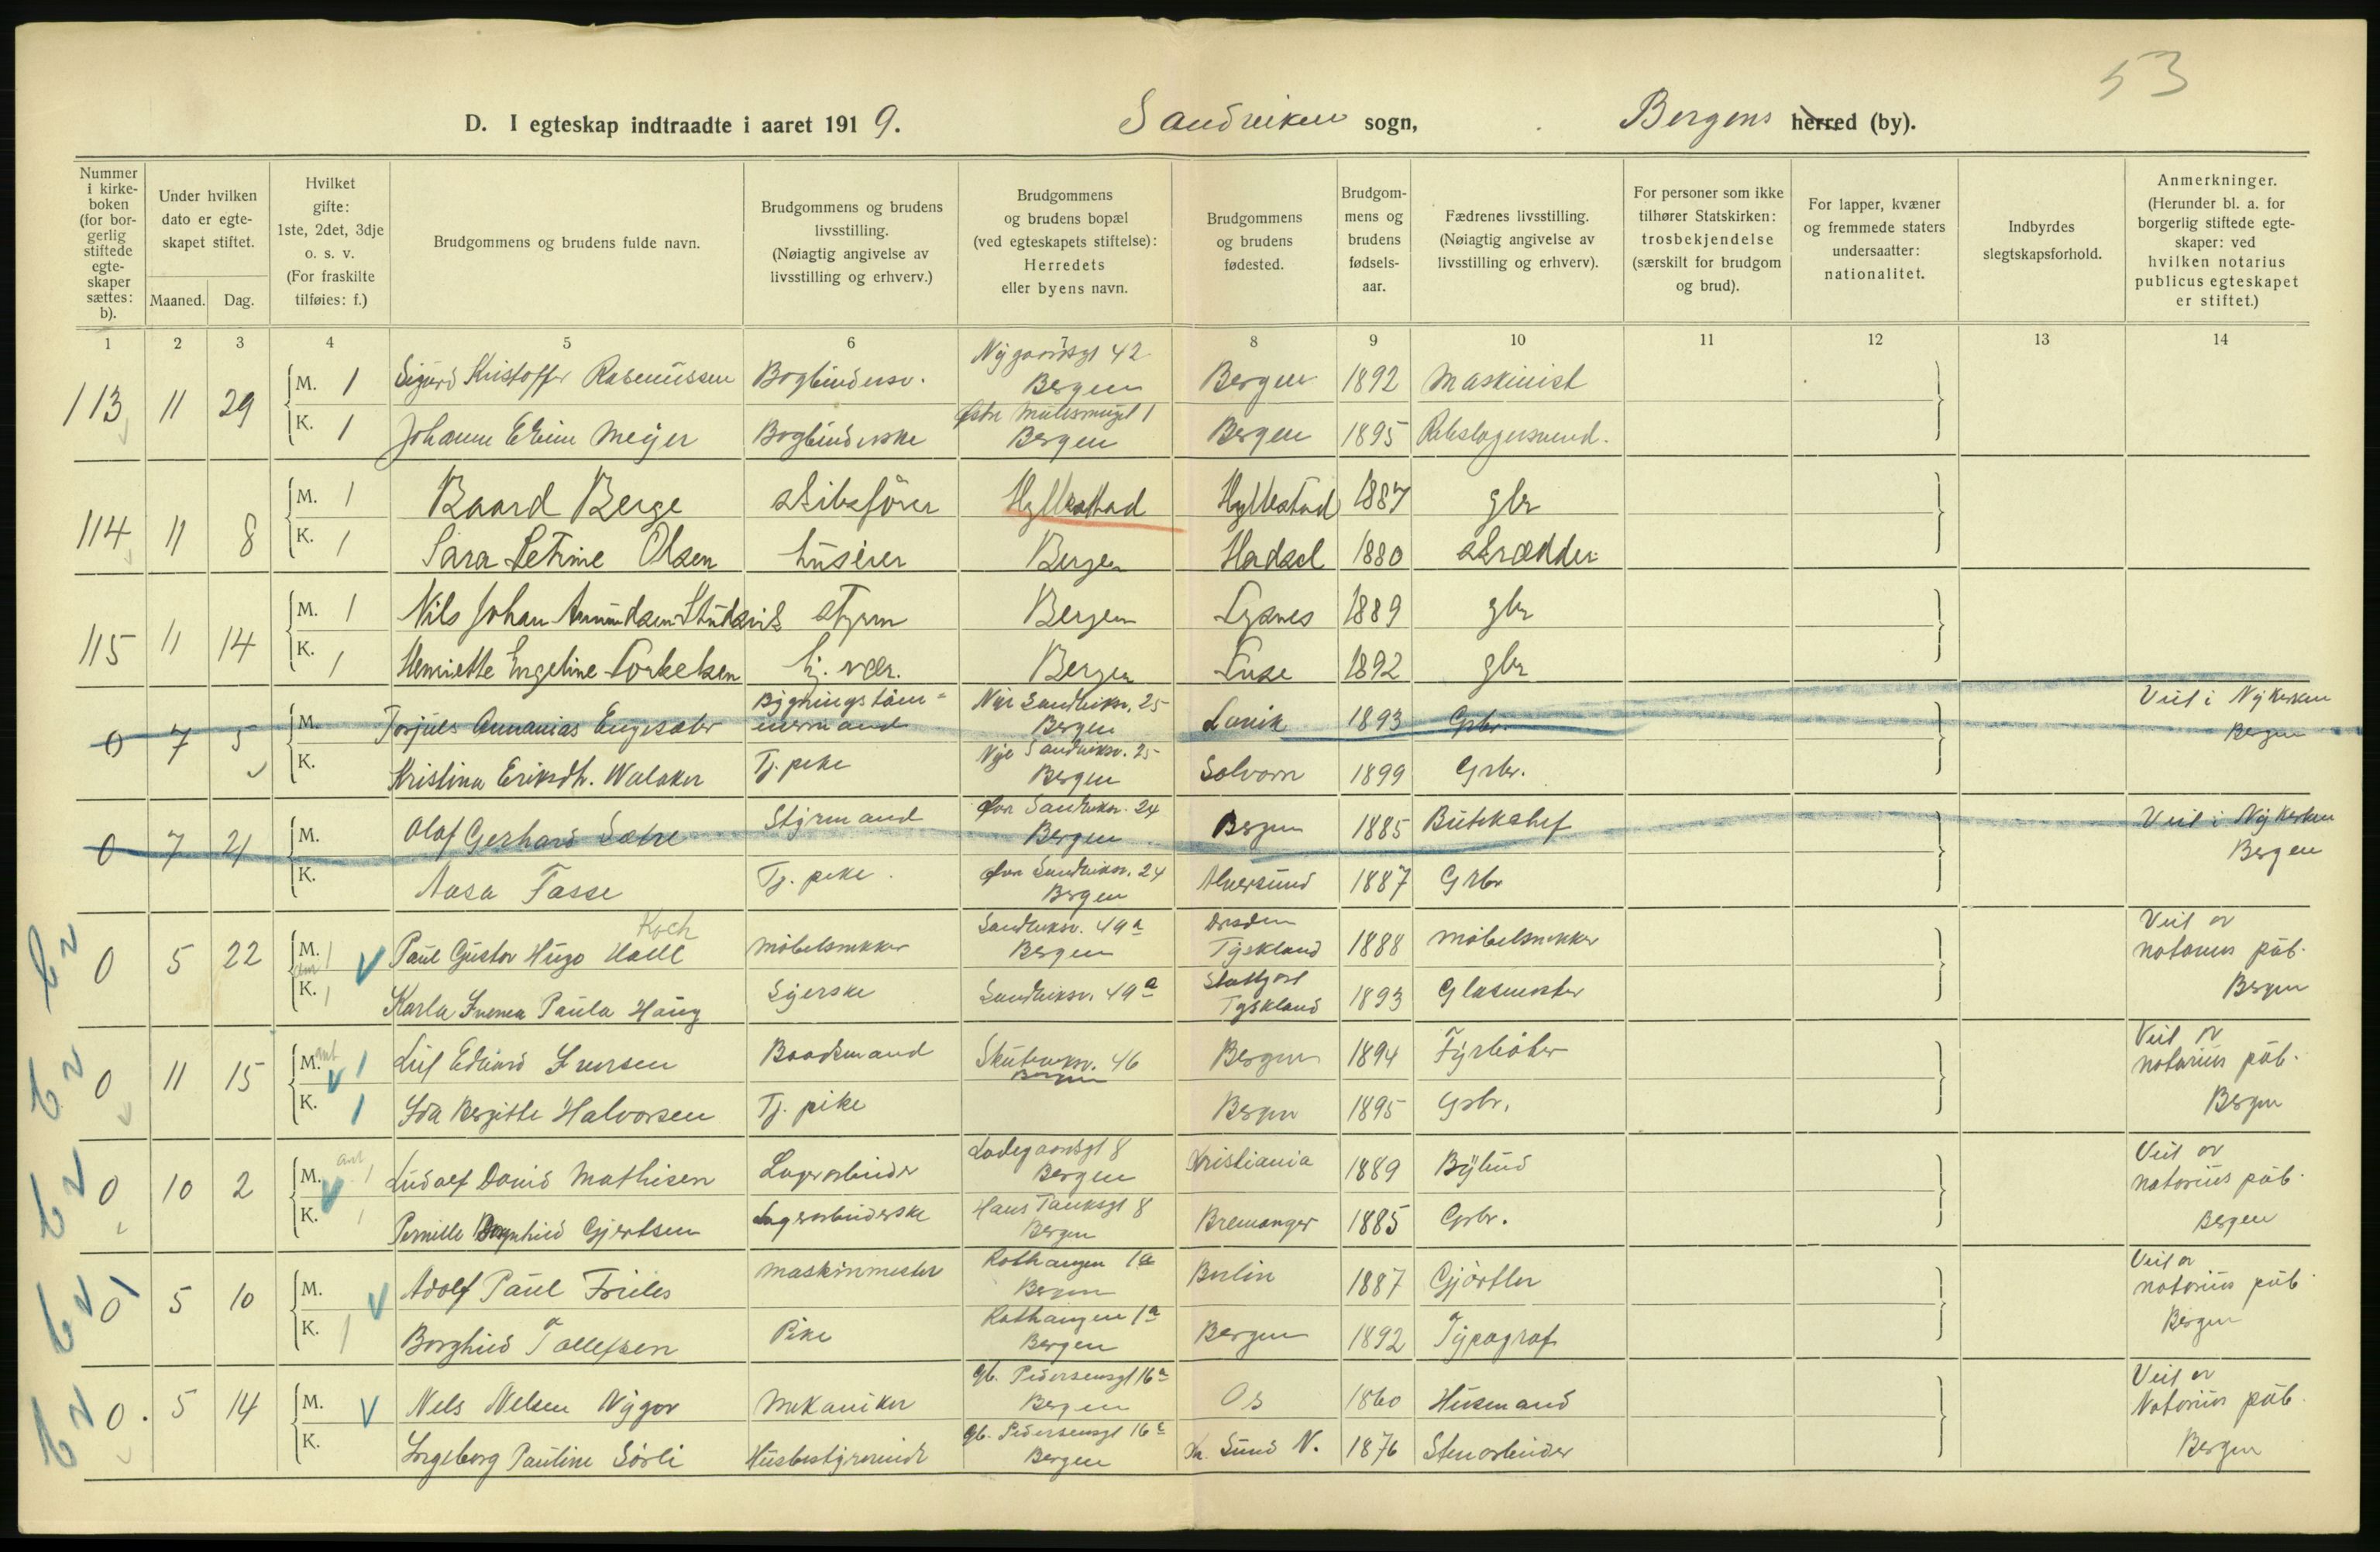 53
D. I egteskap indtraadte i aaret 1919. Sandviken sogn, Bergens herred (by).
Nummer i kirkeboken (for borgerlig stiftede egteskaper sættes: b).
Under hvilken dato er egteskapet stiftet.
Maaned. Dag.
Hvilket gifte: 1ste, 2det, 3dje o. s. v. (For fraskilte tilføies: f.)
Brudgommens og brudens fulde navn.
Brudgommens og brudens livsstilling. (Nøiagtig angivelse av livsstilling og erhverv.)
Brudgommens og brudens bopæl (ved egteskapets stiftelse): Herredets eller byens navn.
Brudgommens og brudens fødested.
Brudgommens og brudens fødselsaar.
Fædrenes livsstilling. (Nøiagtig angivelse av livsstilling og erhverv).
For personer som ikke tilhører Statskirken: trosbekjendelse (særskilt for brudgom og brud).
For lapper, kvæner og fremmede staters undersaatter: nationalitet.
Indbyrdes slegtskapsforhold.
Anmerkninger. (Herunder bl. a. for borgerlig stiftede egteskaper: ved hvilken notarius publicus egteskapet er stiftet.)
1 2 3 4 5 6 8 9 10 11 12 13 14
113 11 29 M. 1 Sigurd Kristoffer Rasmussen Bogbindersv. Nygaardsgt 42 Bergen Bergen 1892 Maskinist
K. 1 Johanne Meyer Bogbinderske Bergen Bergen 1895 Rebslagersvend.
114 11 8 M. 1 Baard Berge skibsfører Hyllestad Hyllestad 1887 gbr
K. 1 Sara Petrine Olsen huseier Bergen Hadsel 1880 skrædder
115 11 14 M. 1 Nils Johan Amundsen Studsvik styrm Bergen 1889 gbr
K. 1 Henriette Engeline Torkelsen Bergen 1892 gbr
0 7 5 M. Torjuls Annanias Engesæter Bygningstømmermand Nye Sandviksv. 25 Bergen Lavik 1893 Grbr. Viet i Nykirken Bergen
K. Kristina Eriksdt. Walaker Tj. pike Nye Sandviksv. 25 Bergen Solvorn 1899 Grbr.
0 7 21 M. Olaf Gerhard Sætre Styrmand Øvre Sandviksv. 24 Bergen Bergen 1885 Viet i Nykirken Bergen
K. Aasa Fosse Tj. pike Øvre Sandviksv. 24 Bergen Alversund 1887 Grbr
0 5 22 M. 1 Paul Gustav Hugo Koch Møbelsnekker Sandviksv. 49a Bergen Dresden Tyskland 1888 Møbelsnekker Viet av notarius pub. Bergen
K. 1 Karla Paula Haug Syerske Sandviksv. 49a Tyskland 1893 Glasmester
0 11 15 M. 1 Leif Edvard Iversen Baadsmand Skuteviksv. 46 Bergen Bergen 1894 Fyrbøter Viet av notarius pub. Bergen
K. 1 Ida Bergitte Halvorsen Tj. pike Bergen 1895 Grbr.
0 10 2 M. 1 Ludolf David Mathisen Lagerarbeider Ladegaardsgt 8 Bergen Kristiania 1889 Bybud Viet av notarius pub. Bergen
K. 1 Pernille Gjertsen Lagerarbeiderske Hans Tanksgt 8 Bergen Bremanger 1885 Grbr.
0 5 10 M. Adolf Paul Maskinmester Rothaugen 1a Bergen Berlin 1887 Gjørtler Viet av notarius pub. Bergen
K. 1 Borghild Tollefsen Pike Rothaugen 1a Bergen Bergen 1892 Typograf
0 5 14 M. Nels Nelsen Nygor Mekaniker Gb. Pedersensgt 16a Bergen Os 1860 Husmand Viet av Notarius pub. Bergen
K. Ingeborg Pauline Sørli Husbestyrerinde Gb. Pedersensgt 16a Bergen Kr. Sund N. 1876 Stenarbeider